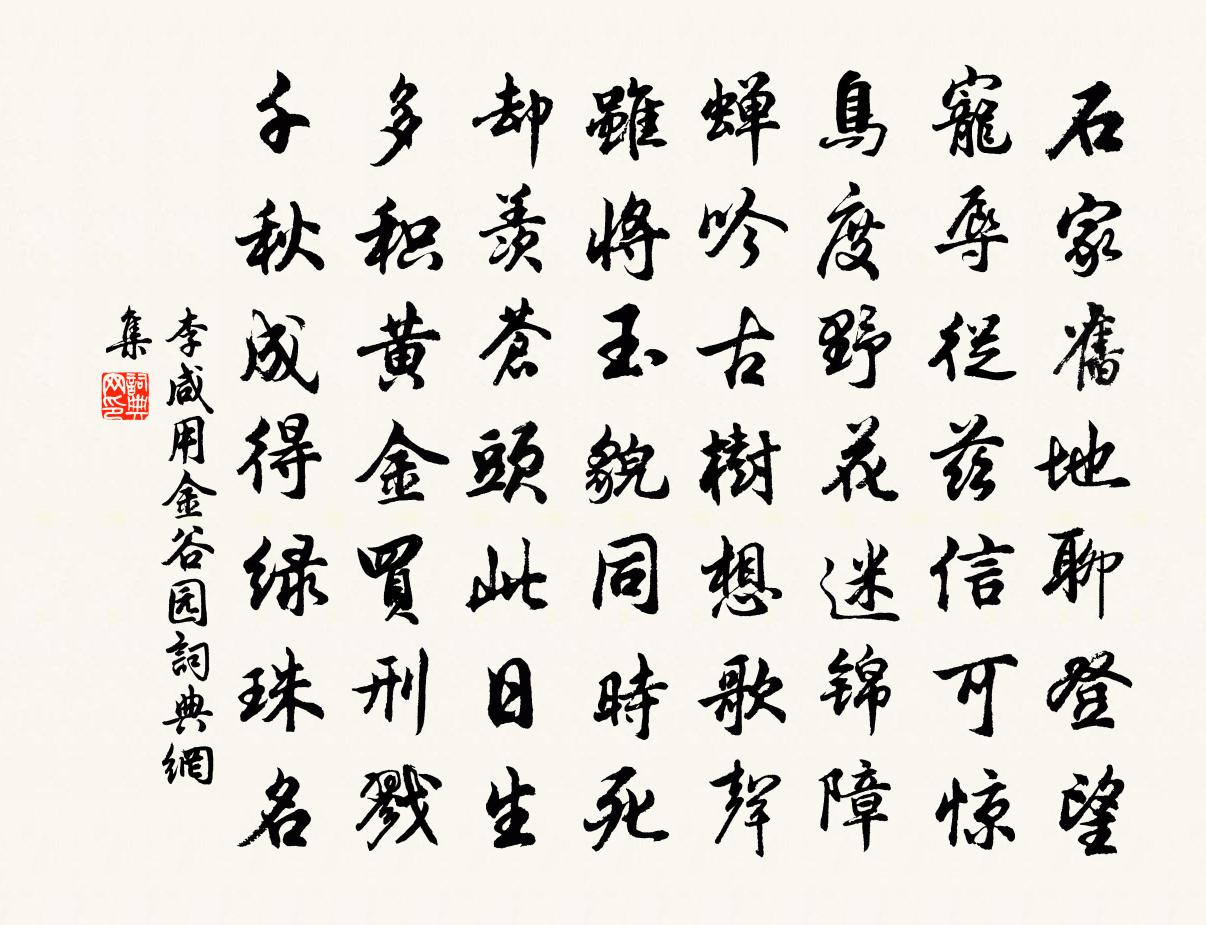 石家舊地聊登望
寵辱從兹信可惊
鳥度野花迷锦障
蝉吟古樹想歌聲
雖將玉貌同時死
却羨蒼頭此日生
多积黄金買刑戮
千秋成得绿珠名
李咸用金谷园詞典網
集
詞典
网印